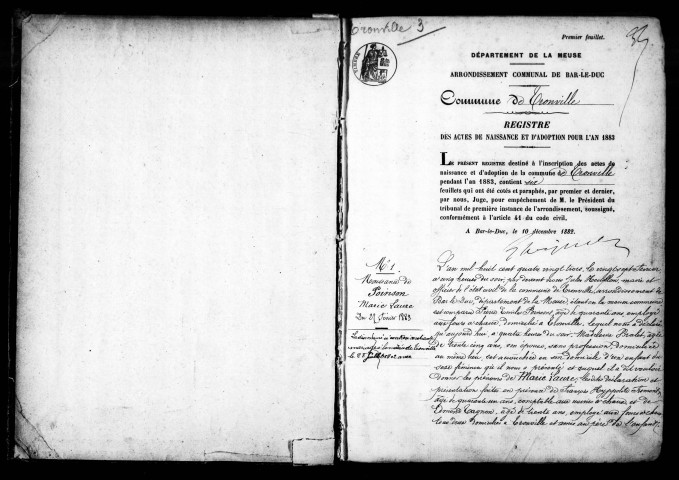 Tronville 3
Premier feuillet.
DÉPARTEMENT DE LA MEUSE
ARRONDISSEMENT COMMUNAL DE BAR-LE-DUC
Commune de Tronville
REGISTRE
DES ACTES DE NAISSANCE ET D'ADOPTION POUR L'AN 1883
LE PRÉSENT REGISTRE destiné à l'inscription des actes de
naissance et d'adoption de la commune de Tronville
pendant l'an 1883, contient six
feuillets qui ont été cotés et paraphés, par premier et dernier,
par nous, Juge, pour empêchement de M. le Président du
tribunal de première instance de l'arrondissement, soussigné,
conformément à l'article 41 du code civil.
A Bar-le-Duc, le 10 décembre 1882.
N° 1
Naissance de
Poinson
Marie Laure
Du 27 février 1883
L'an mil huit cent quatre vingt trois, le vingt sept février
à cinq heures du soir, par devant nous Jules, maire et
officier de l'état civil de la commune de Tronville, arrondissement de
Bar le Duc, département de la Meuse, étant en la maison commune
est comparu Pierre Emile Poinson, âgé de quarante ans, employé
aux fours à chaux, domicilié à Tronville, lequel nous a déclaré
qu'aujourd'hui, à quatre heures du soir, Madeleine, âgée
de trente cinq ans, son épouse, sans profession, domiciliée
au même lieu, est accouchée en son domicile d'un enfant du
sexe féminin qu'il nous a présenté et auquel il a dit vouloir
donner les prénoms de Marie Laure. Les dites déclaration et
présentation faites en présence de François Hyppolite
âgé de quarante un ans, comptable aux usines à chaux et de
Edmond, âgé de trente ans, employé aux fours à chaux
tous deux domiciliés à Tronville et amis au père de l'enfant,